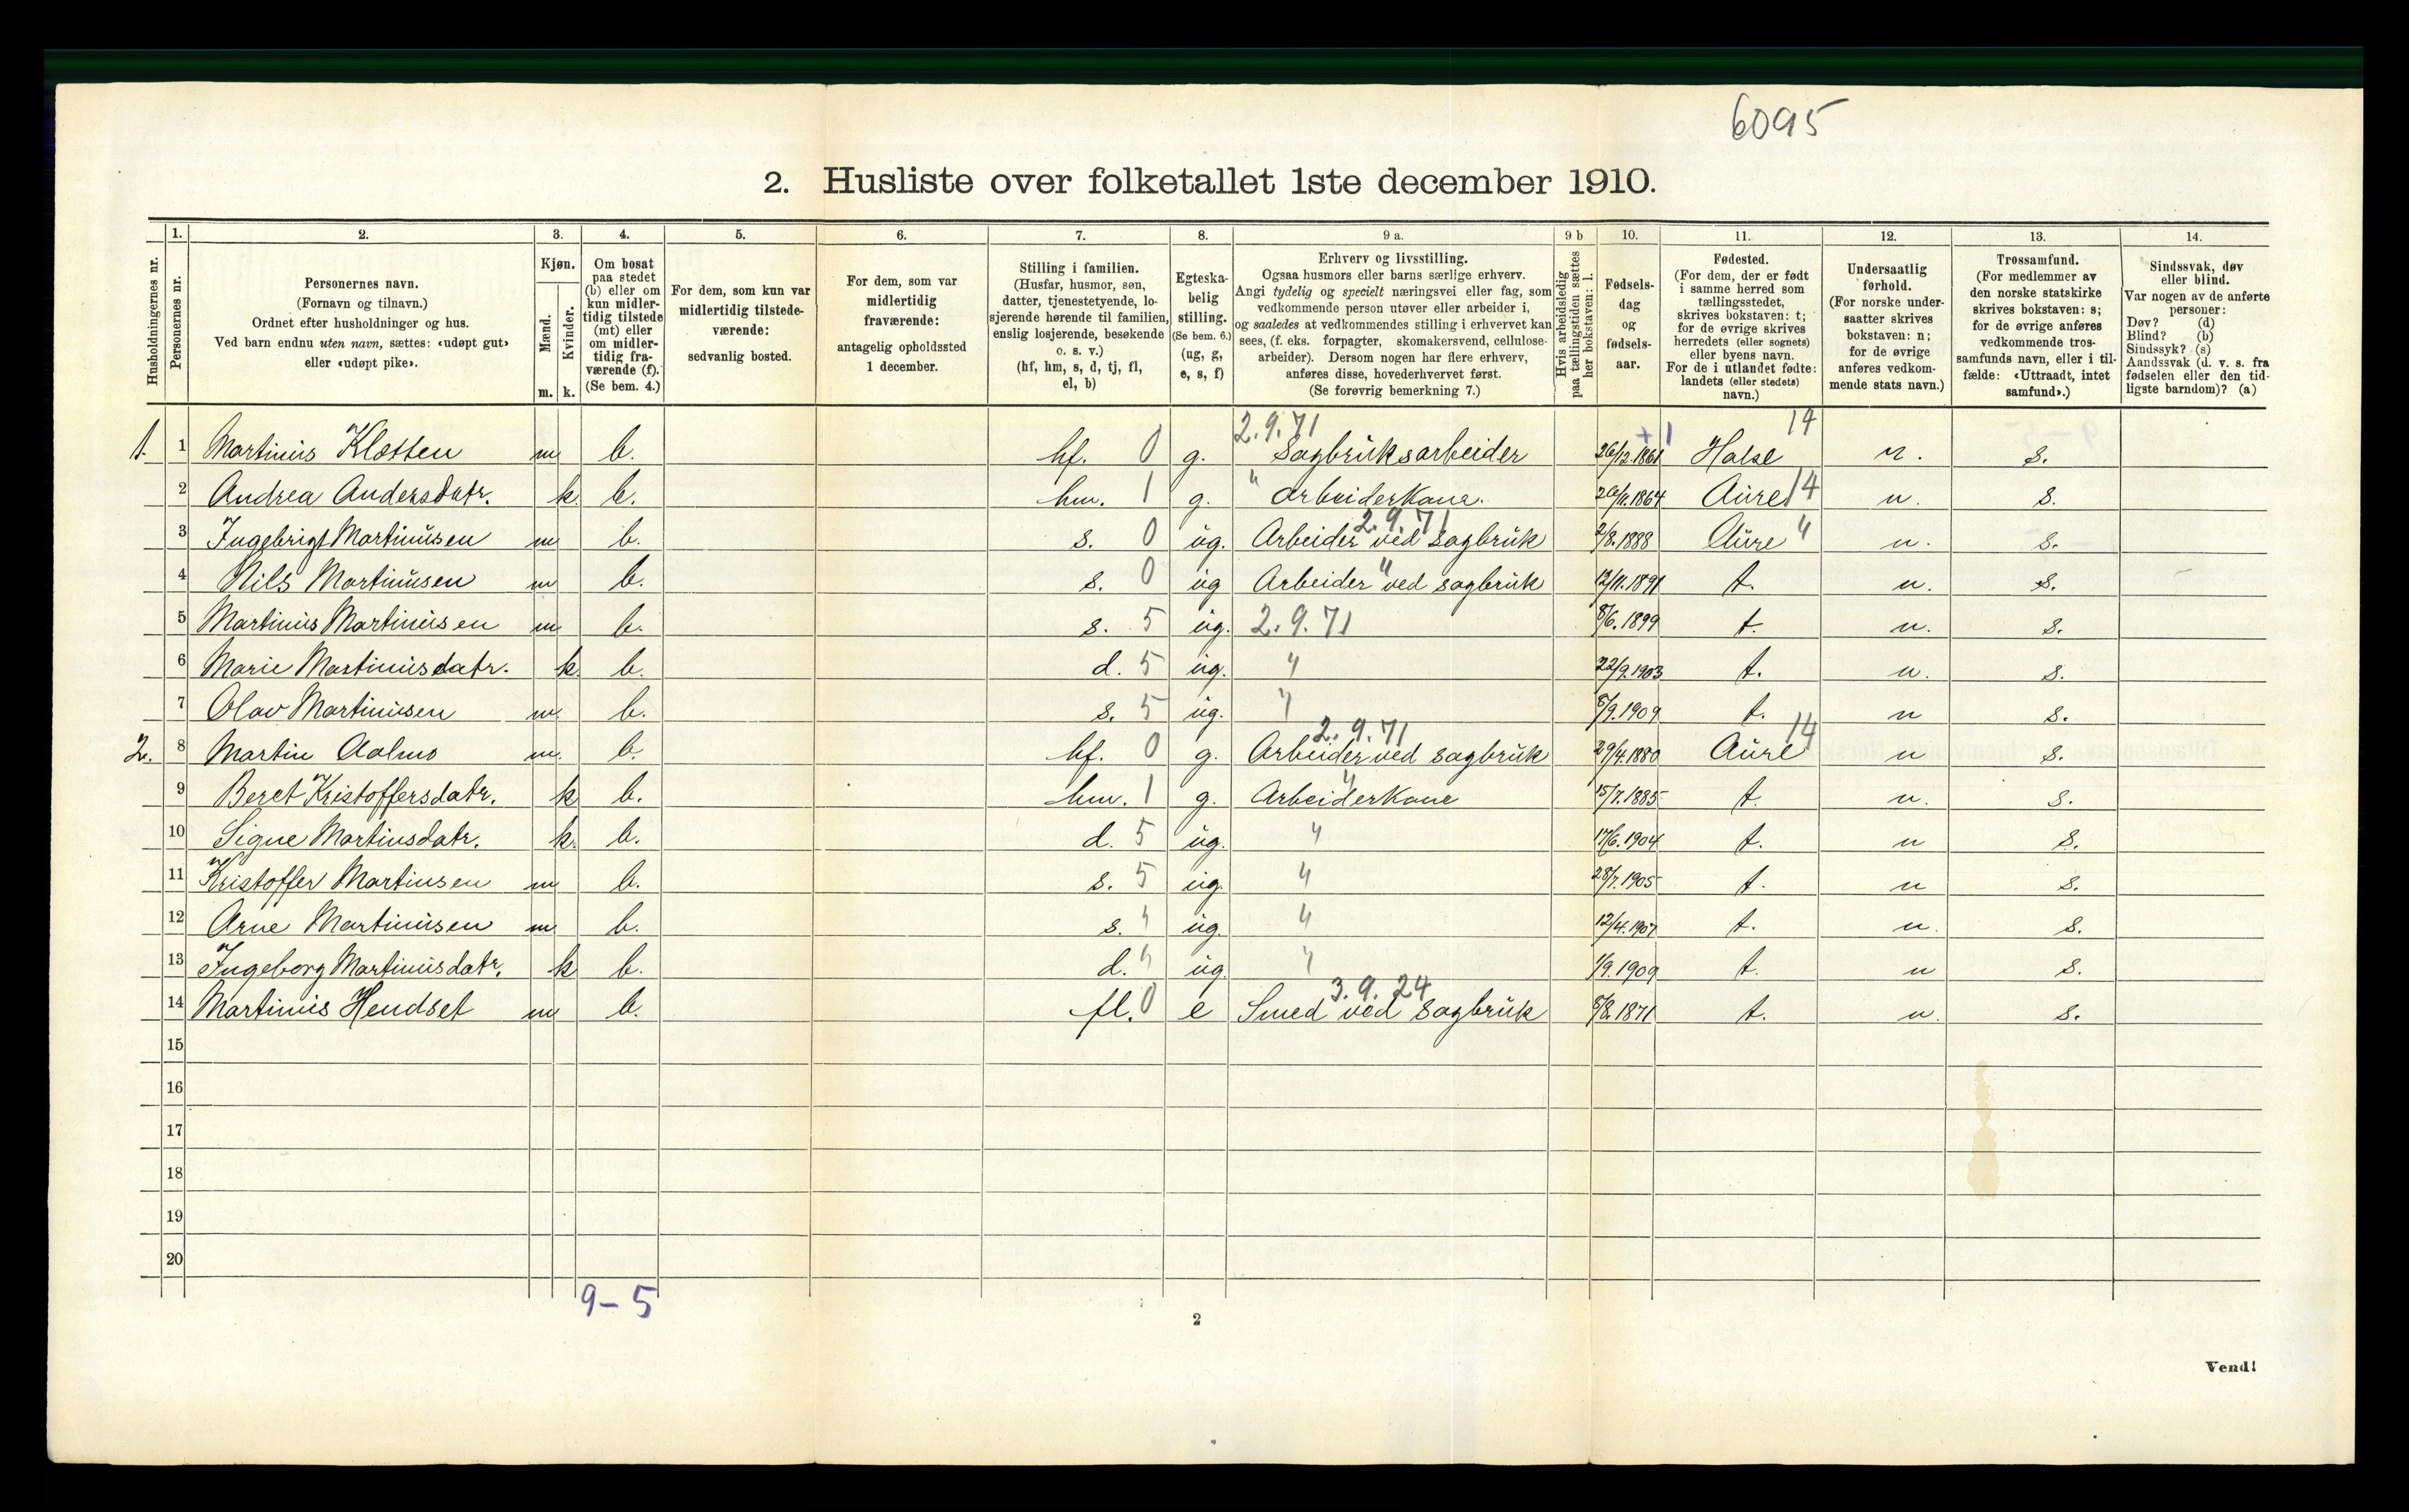 6095
2. Husliste over folketallet 1ste december 1910.
Husholdningernes nr.
1.
Personernes nr.
2.
Personernes navn.
(Fornavn og tilnavn.)
Ordnet efter husholdninger og hus.
Ved barn endnu uten navn, sættes: «udøpt gut»
eller «udøpt pike».
3.
Kjøn.
Mænd.
Kvinder.
m. k.
4.
Om bosat
paa stedet
(b) eller om
kun midler-
tidig tilstede
(mt) eller
om midler-
tidig fra-
værende (f).
(Se bem. 4.)
5.
For dem, som kun var
midlertidig tilstede-
værende:
sedvanlig bosted.
6.
For dem, som var
midlertidig
fraværende:
antagelig opholdssted
1 december.
7.
Stilling i familien.
(Husfar, husmor, søn,
datter, tjenestetyende, lo-
sjerende hørende til familien,
enslig losjerende, besøkende
o. s. v.)
(hf, hm, s, d, tj, fl,
el, b)
8.
Egteska-
belig
stilling.
(Se bem. 6.)
(ug, g,
e, s, f)
9 a.
Erhverv og livsstilling.
Ogsaa husmors eller barns særlige erhverv.
Angi tydelig og specielt næringsvei eller fag, som
vedkommende person utøver eller arbeider i,
og saaledes at vedkommendes stilling i erhvervet kan
sees, (f. eks. forpagter, skomakersvend, cellulose-
arbeider). Dersom nogen har flere erhverv,
anføres disse, hovederhvervet først.
(Se forøvrig bemerkning 7.)
9 b
Hvis arbeidsledig
paa tællingstiden sættes
her bokstaven: l.
10.
Fødsels-
dag
og
fødsels-
aar.
11.
Fødested.
(For dem, der er født
i samme herred som
tællingsstedet,
skrives bokstaven: t;
for de øvrige skrives
herredets (eller sognets)
eller byens navn.
For de i utlandet fødte:
landets (eller stedets)
navn.)
12.
Undersaatlig
forhold.
(For norske under-
saatter skrives
bokstaven: n;
for de øvrige
anføres vedkom-
mende stats navn.)
13.
Trossamfund.
(For medlemmer av
den norske statskirke
skrives bokstaven: s;
for de øvrige anføres
vedkommende tros-
samfunds navn, eller i til-
fælde: «Uttraadt, intet
samfund».)
14.
Sindssvak, døv
eller blind.
Var nogen av de anførte
personer:
Døv? (d)
Blind? (b)
Sindssyk? (s)
Aandssvak (d. v. s. fra
fødselen eller den tid-
ligste barndom)? (a)
2.9.71 + 1 14
1. 1 Martinus Kletten m b. hf. 0 g. Sagbruksarbeider 26/12.1861 Halse n. s.
2 Andrea Andersdatr. k. b. hm. 1 g. " arbeiderkone. 26/11.1864 Aure 14 n. s.
2.9.71
3 Ingebrigt Martinusen m b. s. 0 ug. Arbeider ved sagbruk 2/8.1888 Aure " n. s.
4 Nils Martinusen m b. s. 0 ug Arbeider " ved sagbruk 12/11.1891 t. n. s.
5 Martinus Martinusen m b. s. 5 ug. 2.9.71 8/6.1899 t. n. s.
6 Marie Martinusdatr. k. b. d. 5 ug. " 22/9.1903 t. n. s.
7 Olav Martinusen m. b. s. 5 ug. " 8/9.1909 t. n s.
2.9.71 14
2. 8 Martin Aalmo m. b. hf. 0 g. Arbeider ved sagbruk 29/4.1880 Aure n s.
9 Beret Kristoffersdatr. k b. hm. 1 g. Arbeiderkone " 15/7.1885 t. n. s.
10 Signe Martinsdatr. k. b. d. 5 ug. " 17/6.1904 t. n s.
11 Kristoffer Martinsen m b. s. 5 ug. " 28/7.1905 t. n s.
12 Arne Martinusen m b. s. " ug. " 12/4.1907 t. n. s.
13 Ingeborg Martinusdatr. k b. d. " ug. " 1/9.1909 t. n s.
3.9.24
14 Martinus Hendset m b. fl. 0 e Smed ved sagbruk 8/8.1871 t. n. s.
15
16
17
18
19
20
9-5
2
Vend!